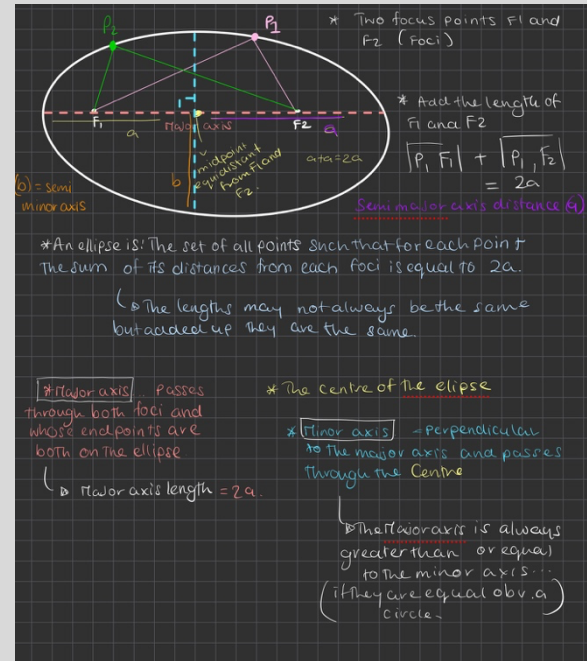 P2
P1
F1
F2
a
Major axis
a
midpoint
equidistant
from F1 and
F2.
a+a=2a
b
(b) = semi
minor axis
* Two focus points F1 and
F2 (Foci)
* Add the length of
F1 and F2
|P1 F1| + |P1, F2|
= 2a
Semi major axis distance (a)
*An ellipse is: The set of all points such that for each point
the sum of its distances from each foci is equal to 2a.
The lengths may not always be the same
but added up they are the same.
*Major axis.. passes
through both foci and
whose endpoints are
both on the ellipse
Major axis length = 2a.
* The centre of the elipse
* Minor axis - Perpendicular
to the major axis and passes
through the Centre
The Major axis is always
greater than or equal
to the minor axis...
(if they are equal obv. a
circle.